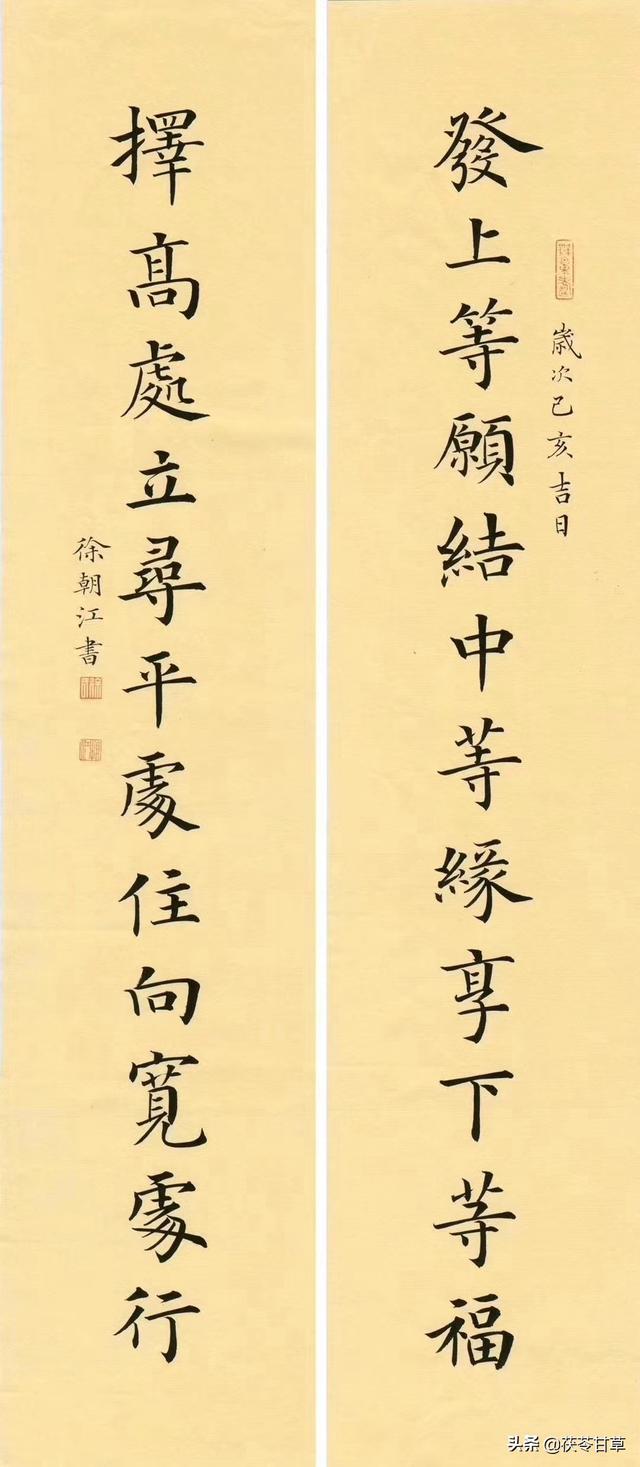 發上等願結中等緣享下等福
歲次己亥吉日
擇高處立尋平處住向寬處行
徐朝江書
头条 @茯苓甘草